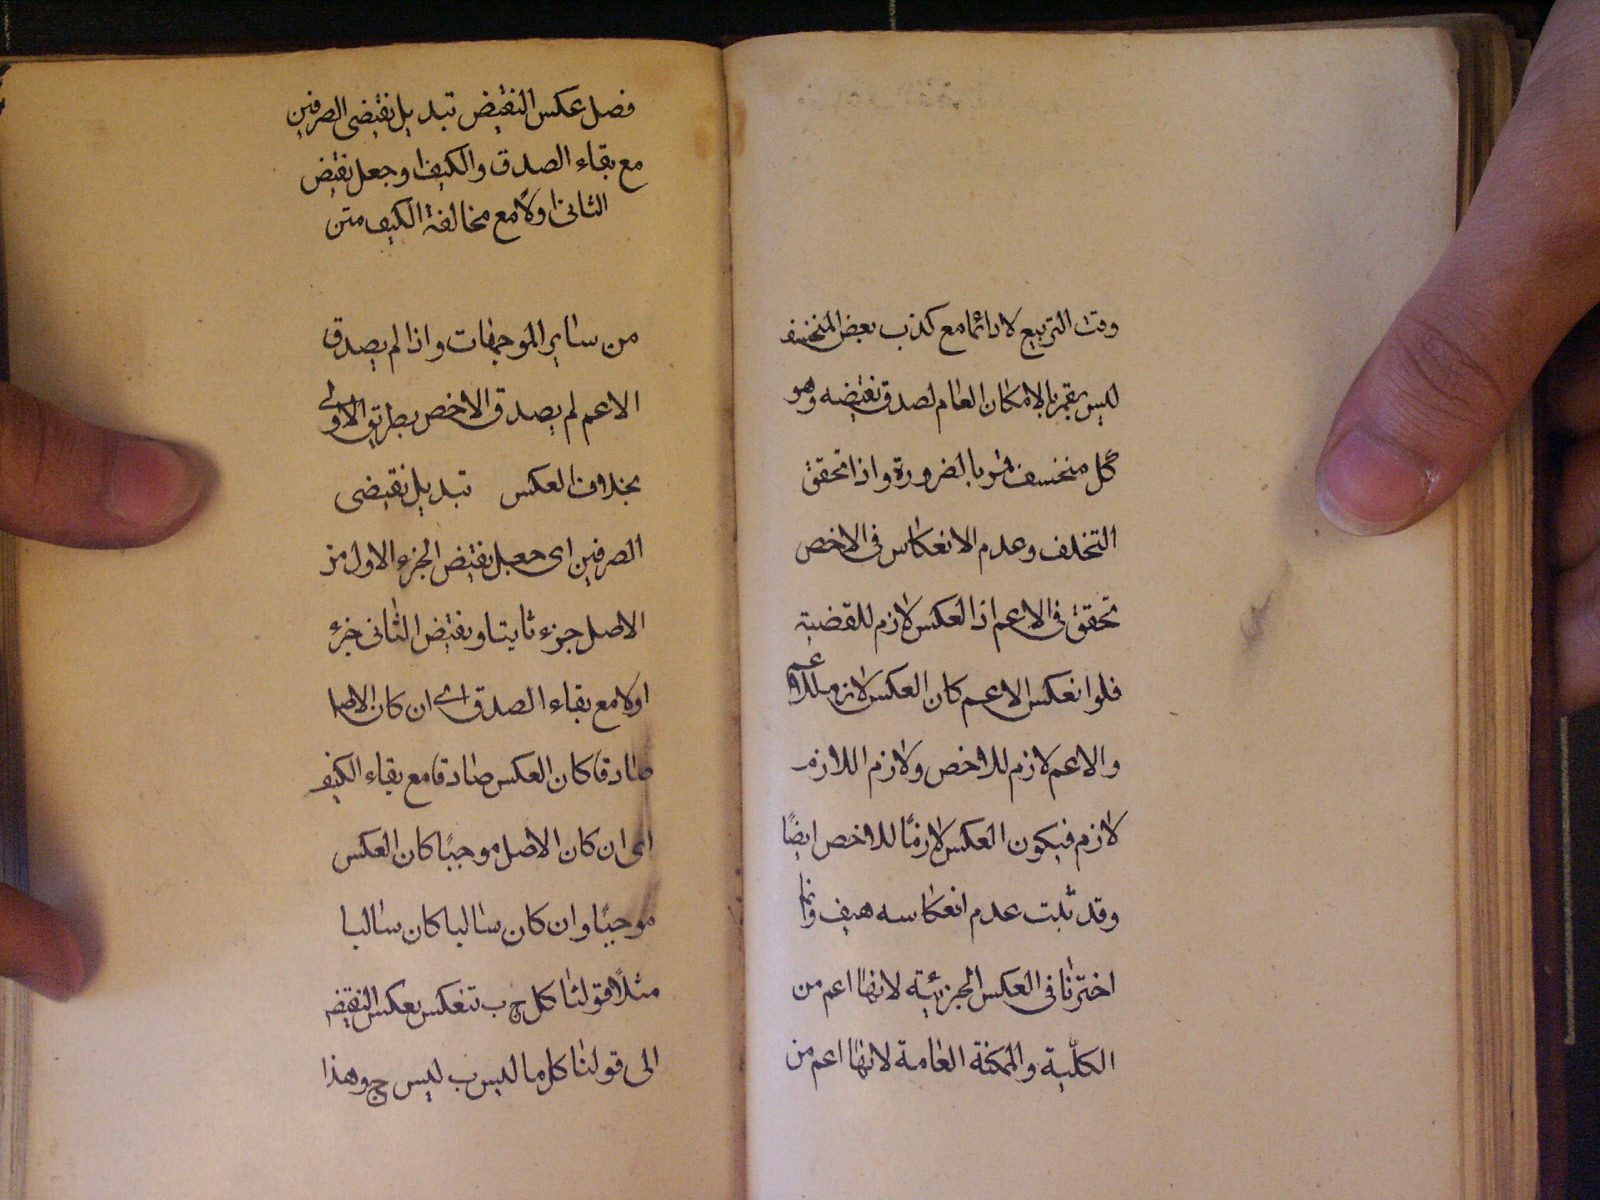 وقت التربيع لا دائما مع كذب بعض المنخسف
ليس بقمر بالامكان العام لصدق نقيضه وهو
كل منخسف قمر بالضرورة واذا تحقق
التخلف وعدم الانعكاس فى الاخص
تحقق فى الاعم اذ العكس لازم للقضية
فلو انعكس الاعم كان العكس لازم للاعم
والاعم لازم للاخص ولازم اللازم
لازم فيكون العكس لازمًا للاخص ايضًا
وقد ثبت عدم انعكاسه هيف وانما
اخترنا فى العكس الجزئية لانها اعم من
الكلّية والممكنة العامة لانها اعم من
فصل عكس النقيض تبديل نقيضى الطرفين
مع بقاء الصدق والكيف او جعل نقيض
الثانى اولًا مع مخالفة الكيف متن
من ساير الموجهات واذا لم يصدق
الاعم لم يصدق الاخص بطريق الاولى
بخلاف العكس تبديل نقيضى
الطرفين اى جعل نقيض الجزء الاول من
الاصل جزء ثانيا ونقيض الثانى جزء
اولا مع بقاء الصدق اى ان كان الاصل
صادقا كان العكس صادقا مع بقاء الكيف
اى ان كان الاصل موجبًا كان العكس
موجبًا وان كان سالبا كان سالبا
مثلًا قولنا كل ج ب تنعكس بعكس النقيض
الى قولنا كل ما ليس ب ليس ج وهذا